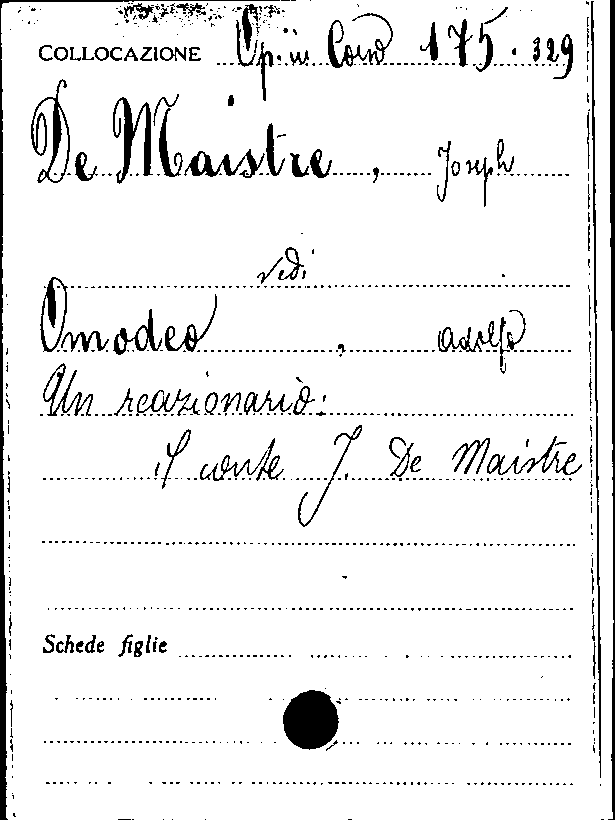 COLLOCAZIONE Op. in Cons 175.329
De Maistre, Joseph
vedi
Omodeo, Adolfo
Un reazionario:
il conte J. De Maistre
Schede figlie